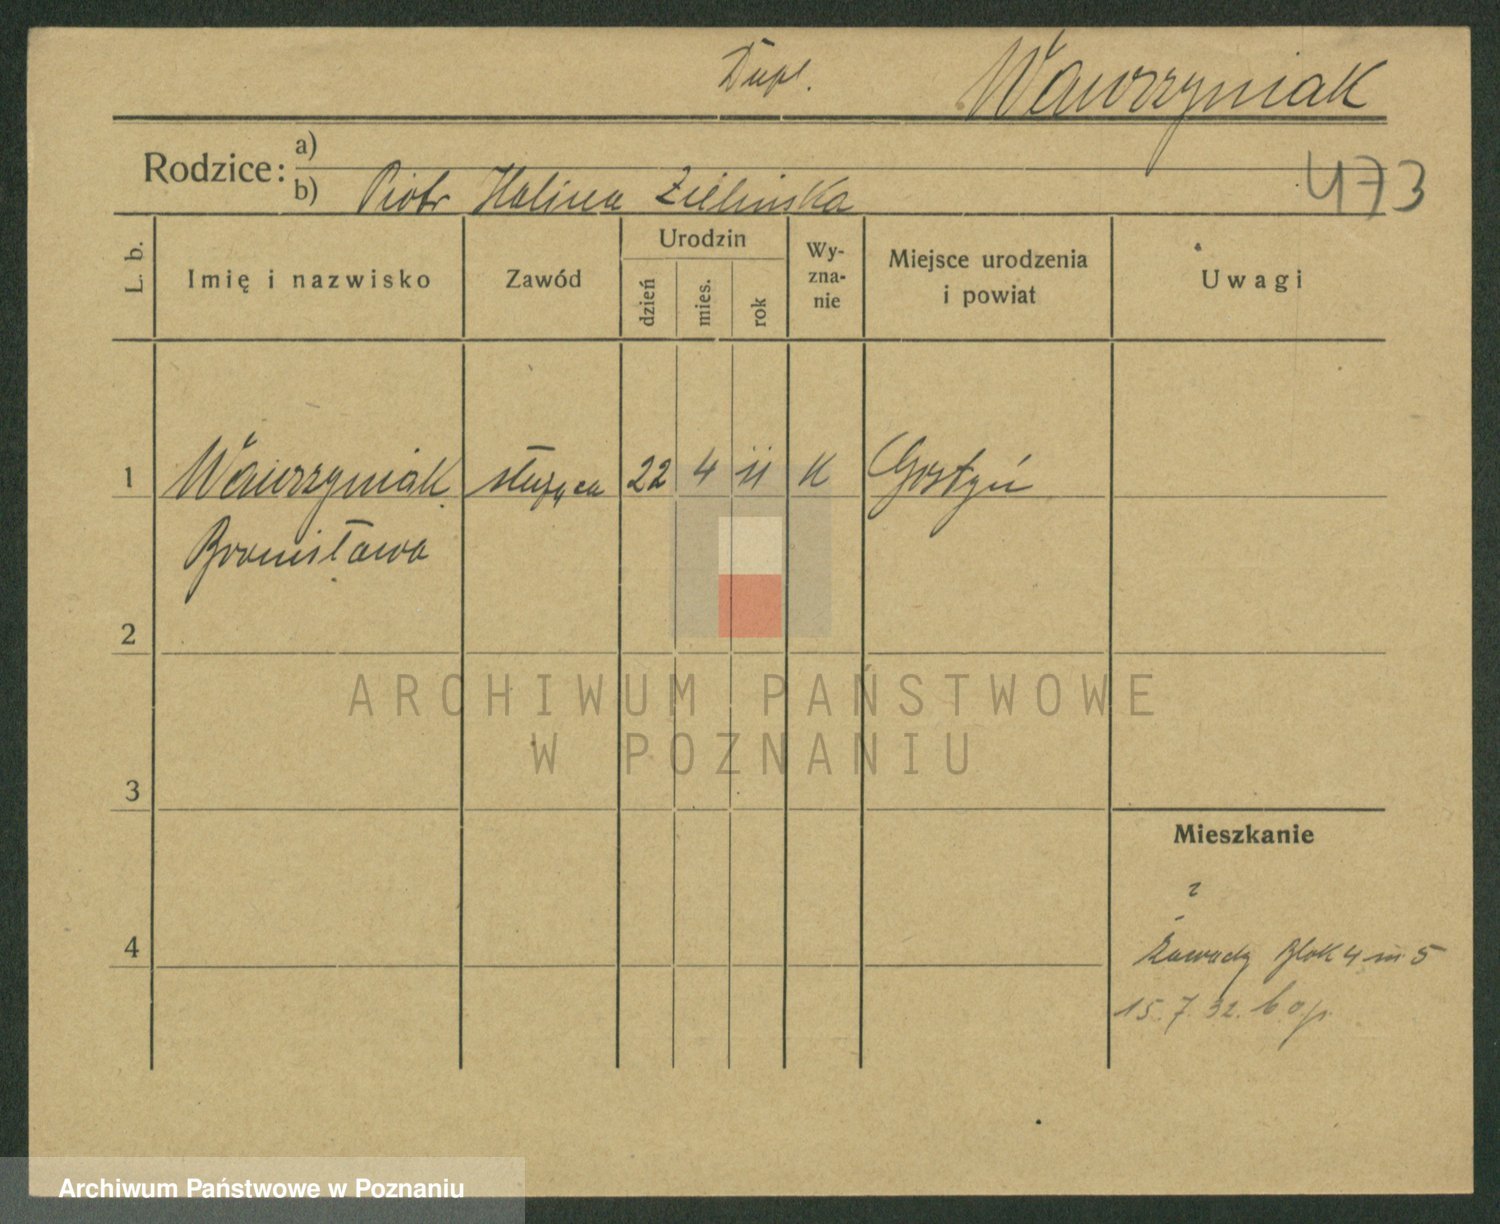 Dupl. Wawrzyniak
Rodzice: a)
b) Piotr Halina Zielińska
473
L. b. Imię i nazwisko Zawód Urodzin dzień mies. rok Wy-zna-nie Miejsce urodzenia i powiat Uwagi
1 Wawrzyniak służąca 22 4 11 K Gostyń
Bronisława
2
ARCHIWUM PAŃSTWOWE
W POZNANIU
3
Mieszkanie
4
Zawady Blok 4 m 5
15.7.32.
Archiwum Państwowe w Poznaniu